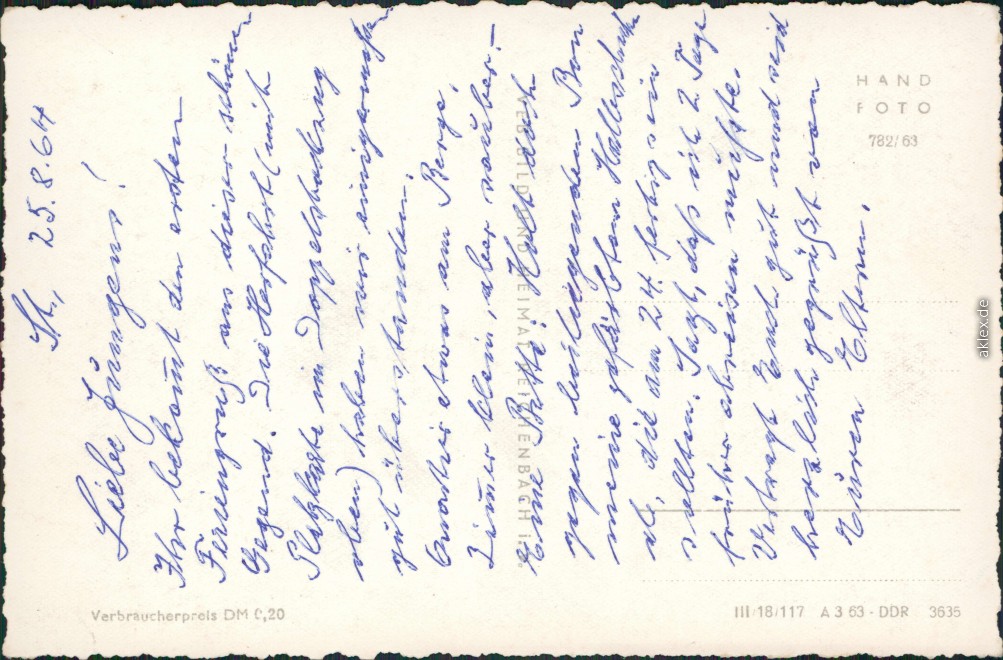 St., 25.8.64
Liebe Jungens!
Ihr bekommt den ersten
Feriengruß aus dieser schönen
Gegend. Die Herfahrt (mit
Platzkarte im Doppelstockzug
oben) haben wir einigermaßen
gut überstanden.
Quartier etwas am Berge,
Zimmer klein, aber sauber. –
Eine Bitte: Holt doch
gegen beiliegenden Bon
meine gefärbten
ab, die am 24. fertig sein
sollten. Sagt, daß ich 2 Tage
früher abreisen müßte.
Vertragt Euch gut und seid
herzlich gegrüßt von
Euren Eltern.
HAND
FOTO
782/63
VEB BILD UND HEIMAT REICHENBACH I. V.
Verbraucherpreis DM 0,20
III/18/117 A 3 63 - DDR 3635
aklex.de